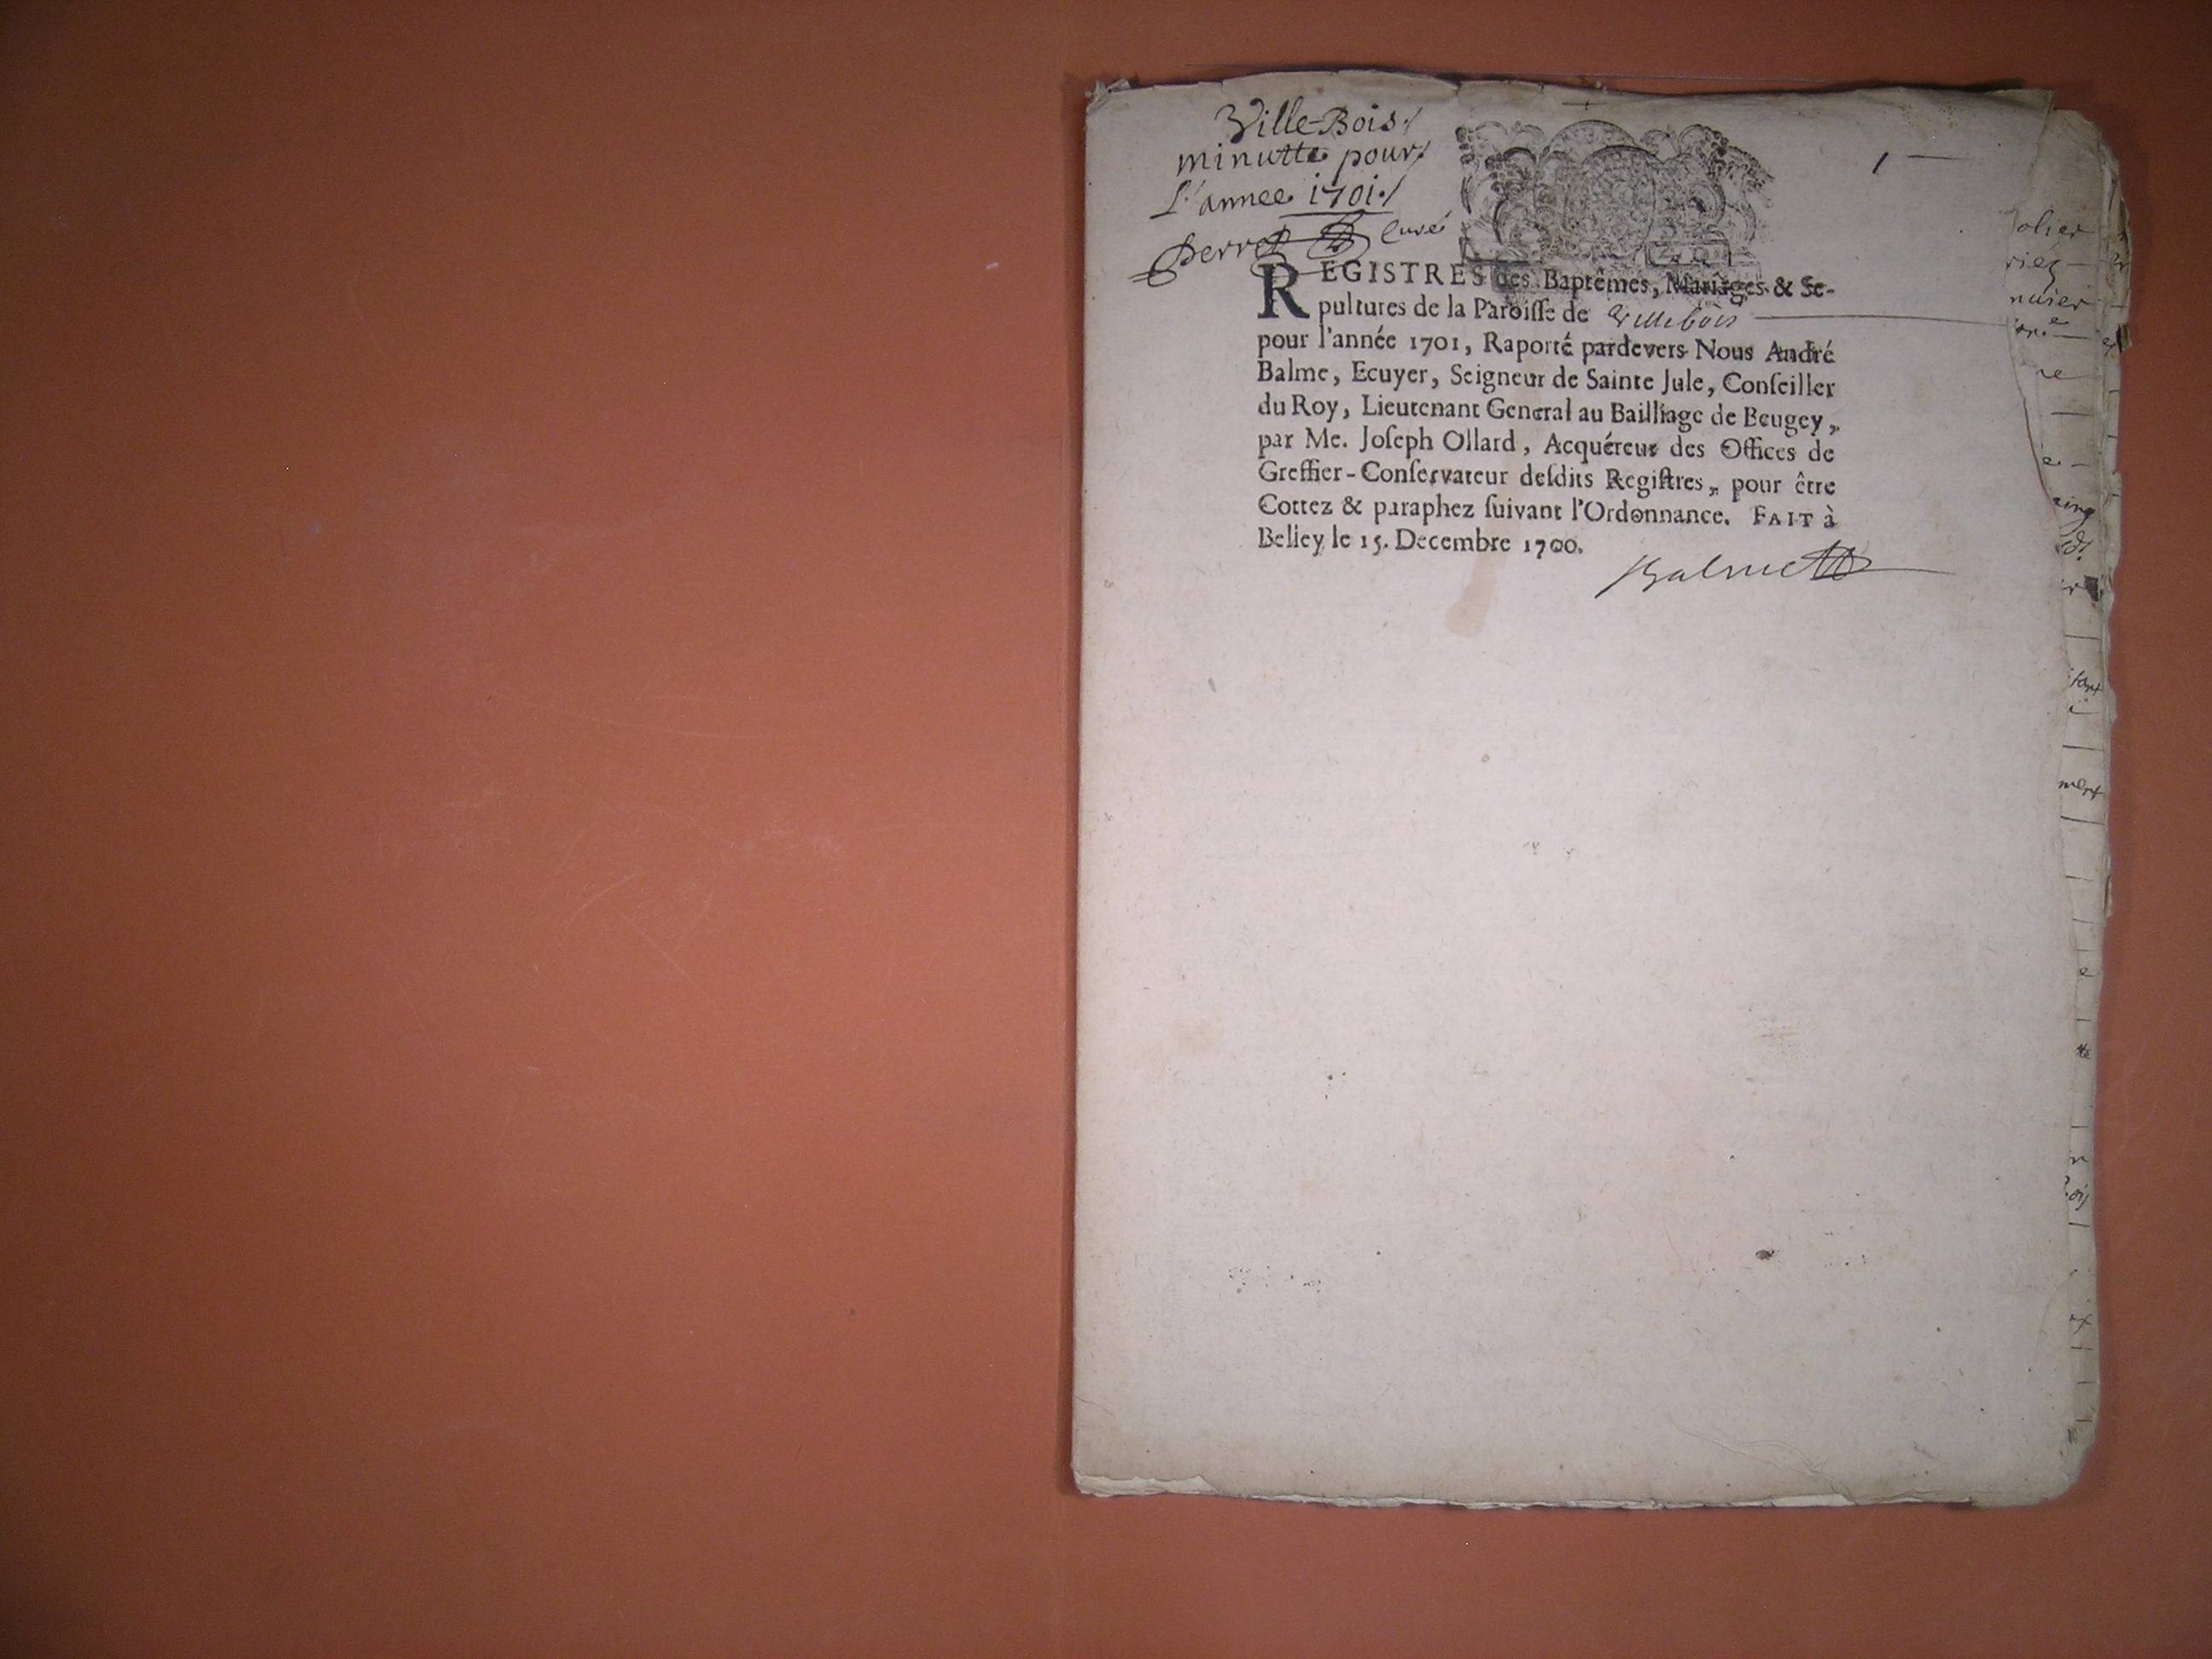 Ville-Bois
minutte pour
L'annee 1701
Perret Curé
1
REGISTRES des Baptêmes, Mariages & Se-
pultures de la Paroisse de Villebois
pour l'année 1701, Raporté pardevers Nous André
Balme, Ecuyer, Seigneur de Sainte Jule, Conseiller
du Roy, Lieutenant General au Bailliage de Beugey,
par Me. Joseph Ollard, Acquéreur des Offices de
Greffier-Conservateur desdits Registres, pour être
Cottez & paraphez suivant l'Ordonnance. FAIT à
Belley le 15. Decembre 1700.
Balme